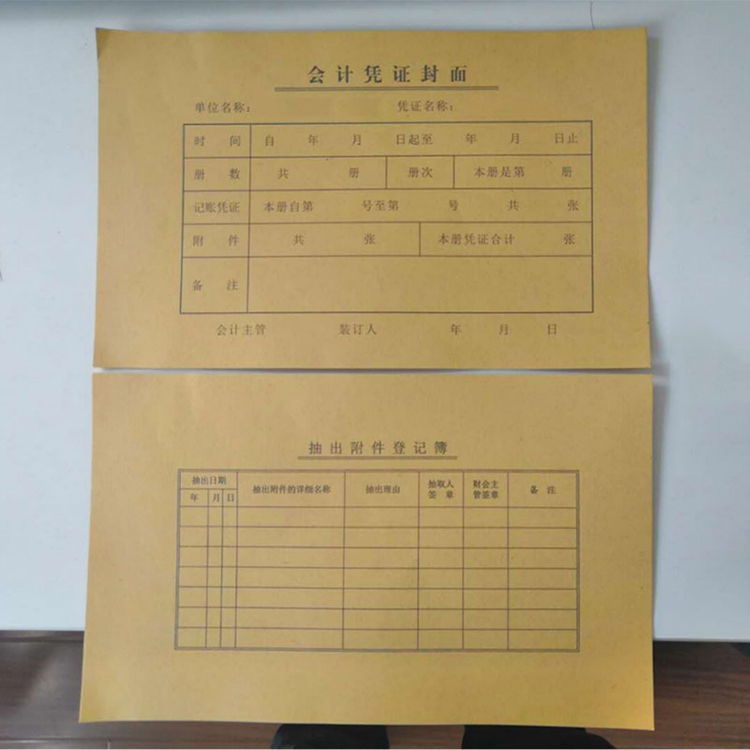 会计凭证封面
单位名称： 凭证名称：
时 间 自 年 月 日起至 年 月 日止
册 数 共 册 册次 本册是第 册
记账凭证 本册自第 号至第 号 共 张
附 件 共 张 本册凭证合计 张
备 注
会计主管 装订人 年 月 日
抽出附件登记簿
抽出日期 抽出附件的详细名称 抽出理由 抽取人 财会主 备 注
年 月 日 签 章 管签章